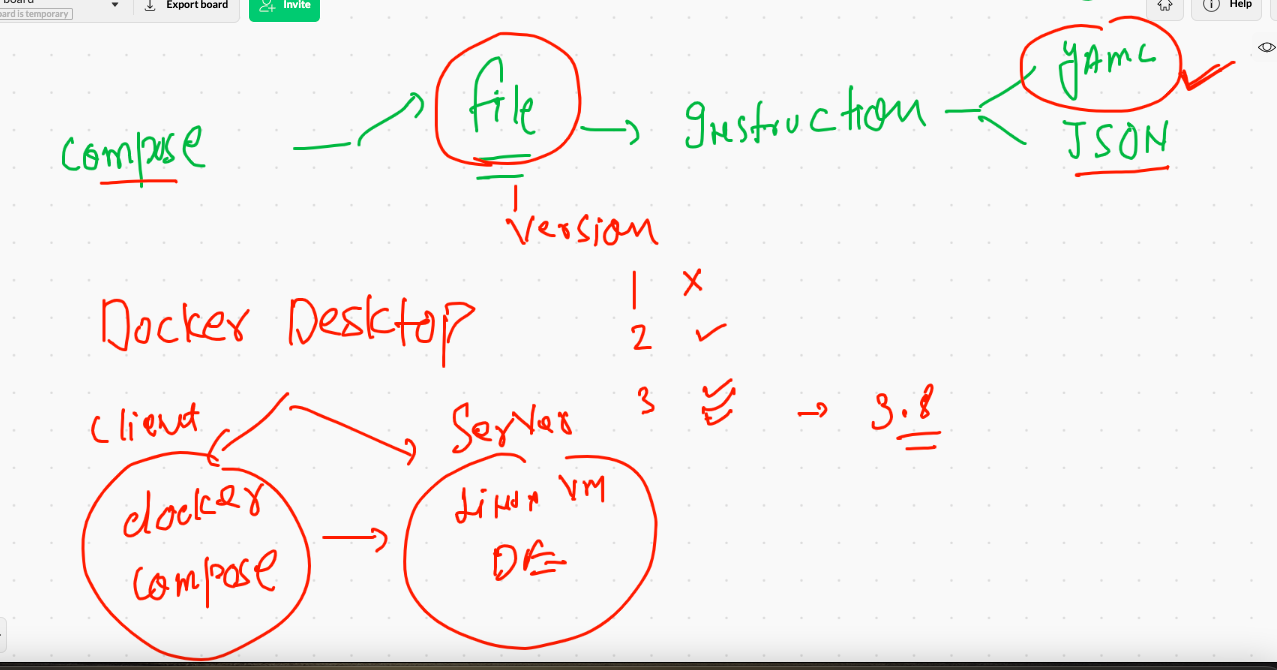 Board
ard is temporary
Export board
Invite
Help
compose
file
Instruction
YAML
JSON
Version
1 x
2 ✓
3 → 3.8
Docker Desktop
Client
Server
docker
compose
Linux VM
DE